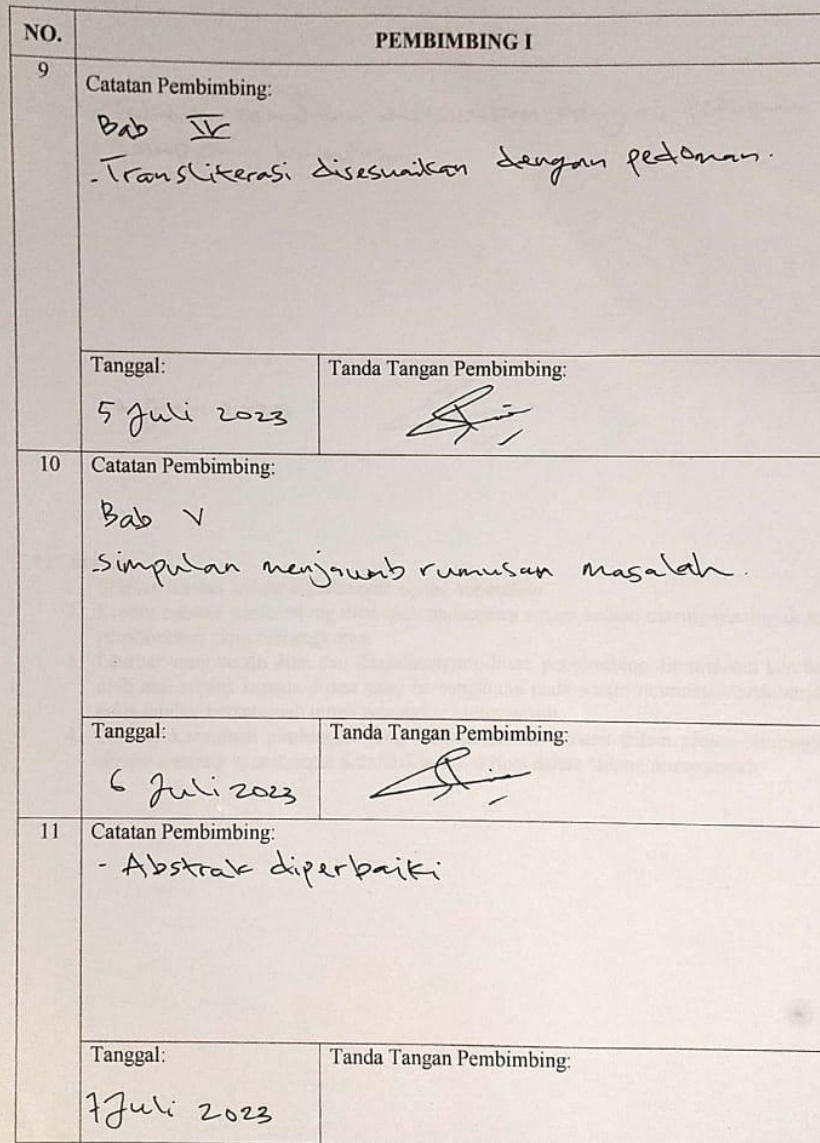 NO.
PEMBIMBING I
9
Catatan Pembimbing:
Bab IV
- Transliterasi disesuaikan dengan pedoman.
Tanggal:
Tanda Tangan Pembimbing:
5 Juli 2023
10
Catatan Pembimbing:
Bab V
- simpulan menjawab rumusan masalah.
Tanggal:
Tanda Tangan Pembimbing:
6 Juli 2023
11
Catatan Pembimbing:
- Abstrak diperbaiki
Tanggal:
Tanda Tangan Pembimbing:
7 Juli 2023